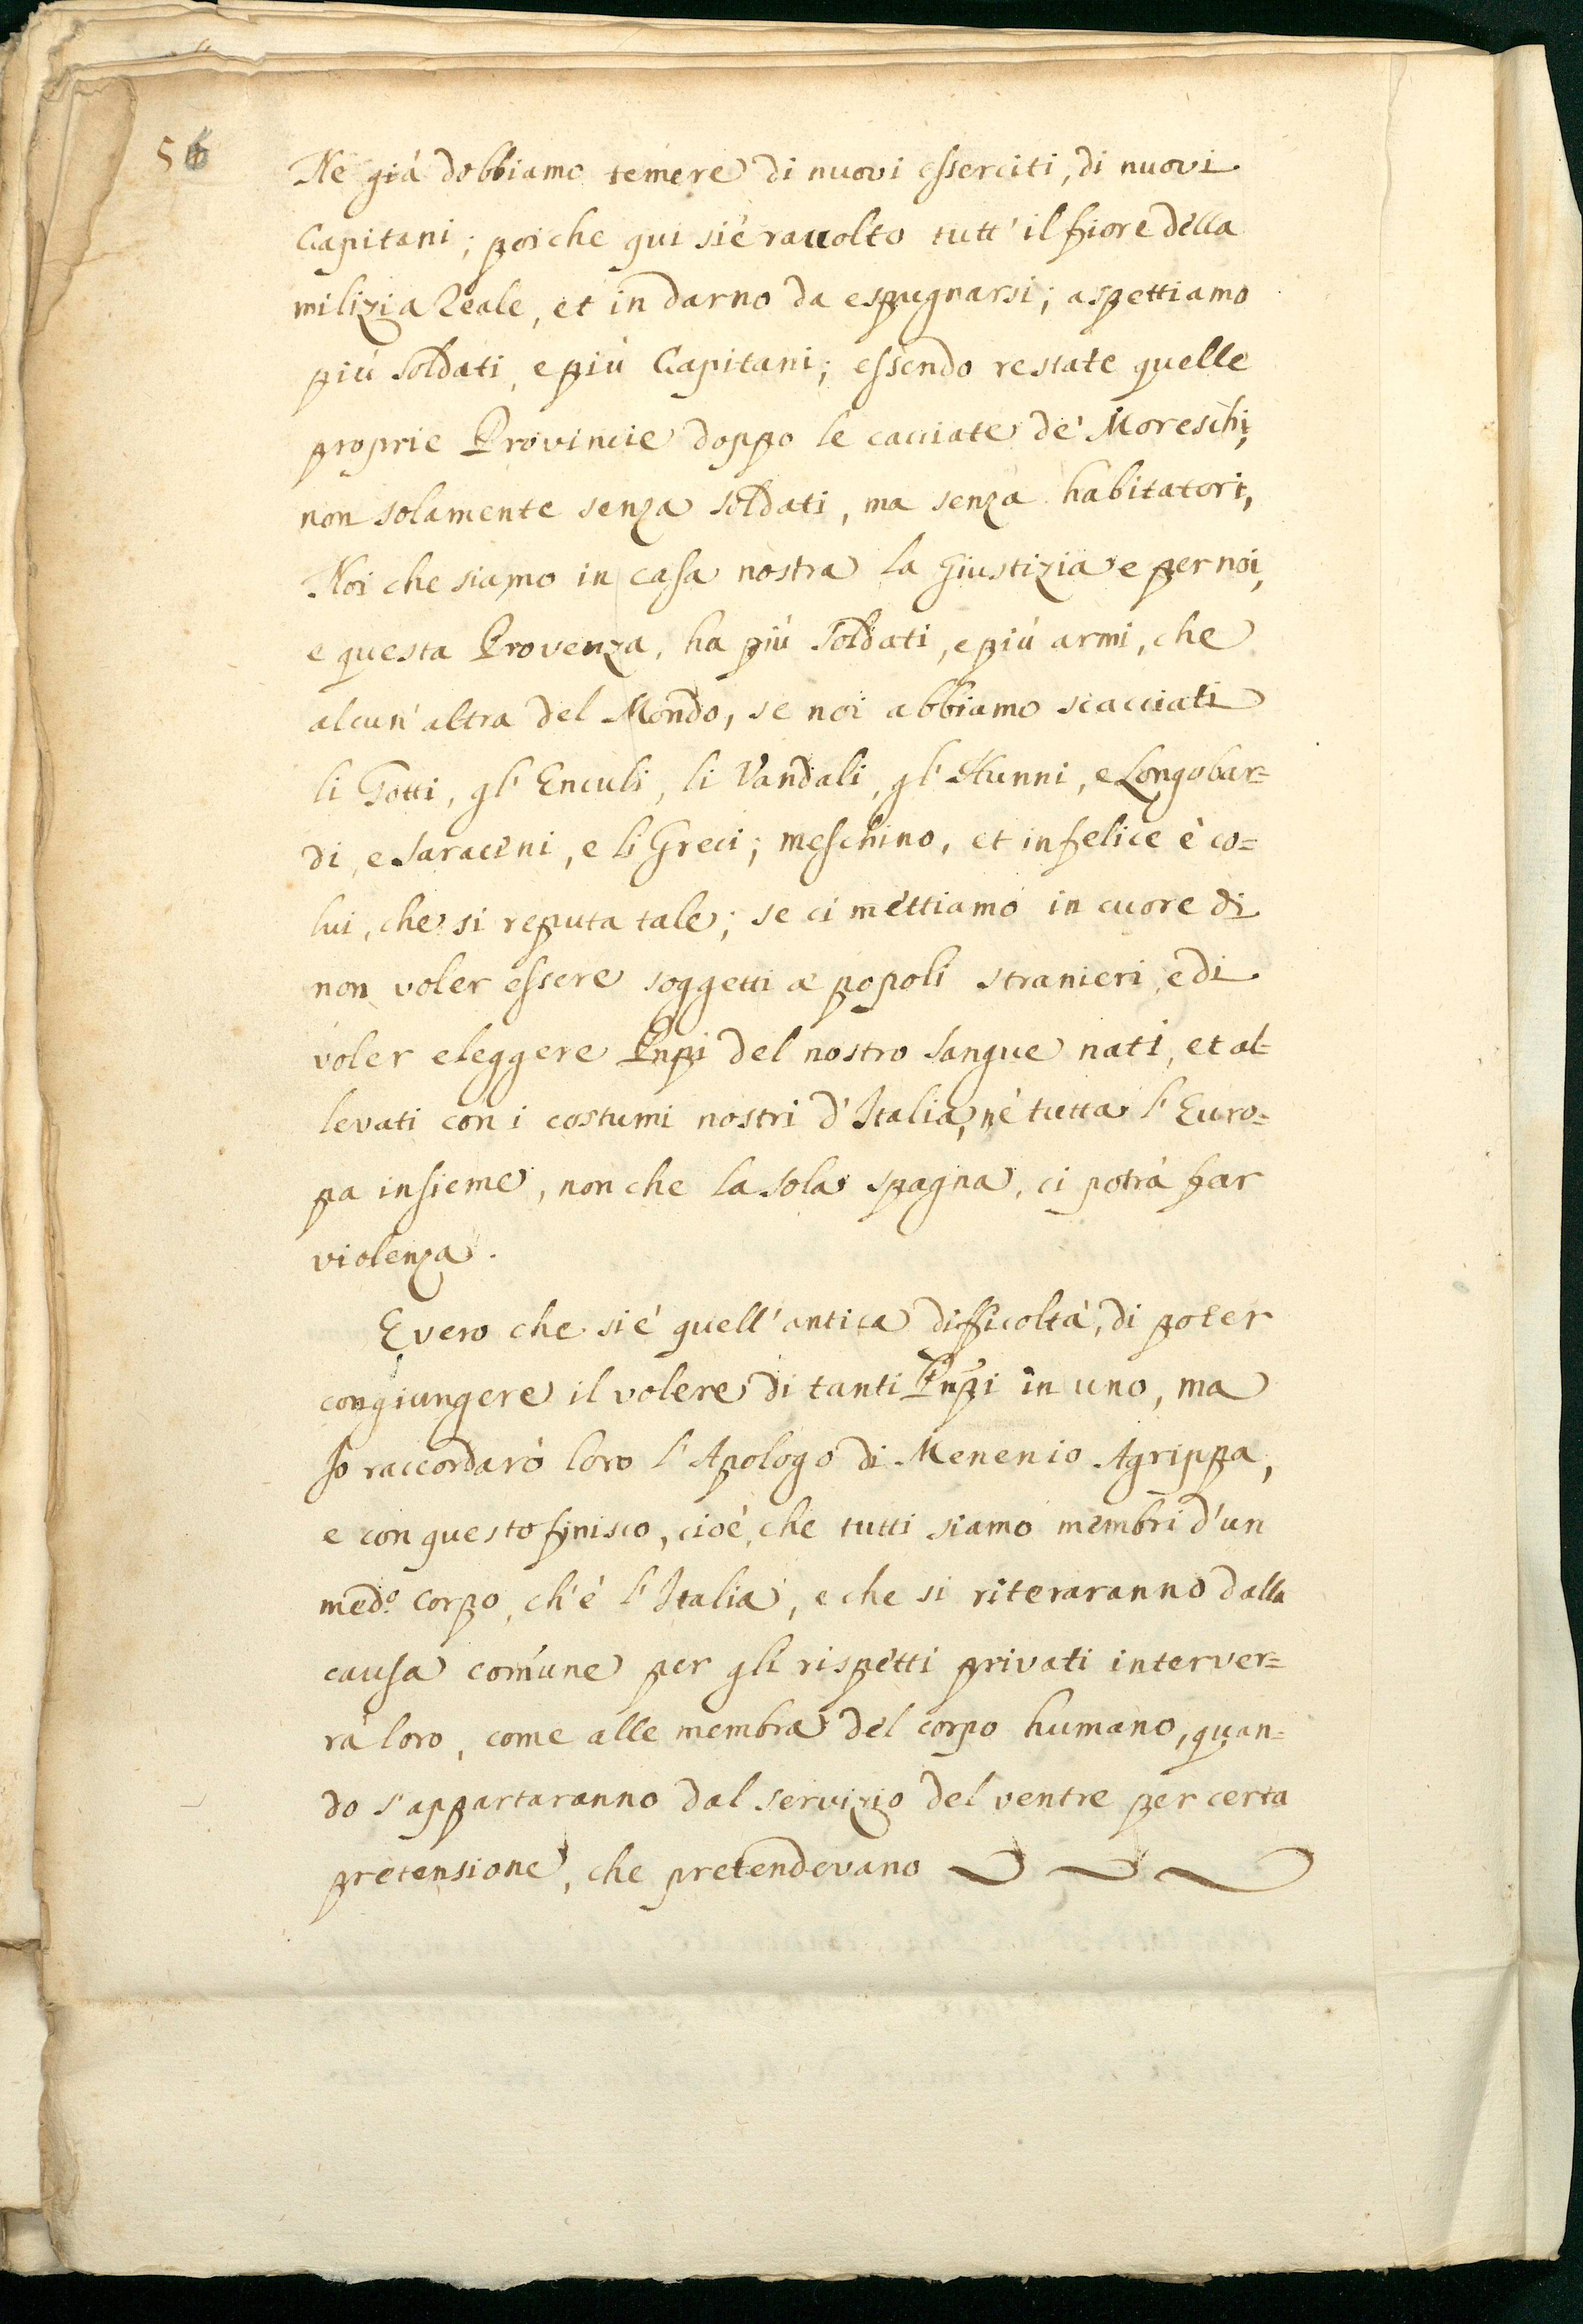 56
Ne già dobbiamo temere di nuovi esserciti, di nuovi
Capitani; poiche qui si è racuolto tutt' il fiore della
milizia Reale, et in darno da espugnarsi; aspettiamo
più soldati, e più Capitani; essendo restate quelle
proprie Provincie doppo le cacciate de' Moreschi,
non solamente senza soldati, ma senza habitatori,
Noi che siamo in casa nostra la Giustizia e per noi,
e questa Provenza, ha più soldati, e più armi, che
alcun' altra del Mondo, se noi abbiamo scacciati
li Gotti, gl' Enculi, li Vandali, gl' Hunni, e Longobar=
di, e Saraceni, e li Greci; meschino, et infelice è co=
lui, che si reputa tale; se ci mettiamo in cuore di
non voler essere soggetti a popoli stranieri, e di
voler eleggere Pnpi del nostro sangue nati, et al=
levati con i costumi nostri d'Italia, nè tutta l' Euro=
pa insieme, non che la sola spagna, ci potrà far
violenza.
E vero che si è quell' antica difficoltà, di poter
congiungere il volere di tanti Pnpi in uno, ma
Io raccordarò loro l' Apologo di Menenio Agrippa,
e con questo finisco, cioè, che tutti siamo membri d'un
med.º Corpo, ch' è l' Italia, e che si riteraranno dalla
causa comune per gli rispetti privati interver=
rà loro, come alle membra del corpo humano, quan=
do s' appartaranno dal servizio del ventre per certa
pretensione, che pretendevano